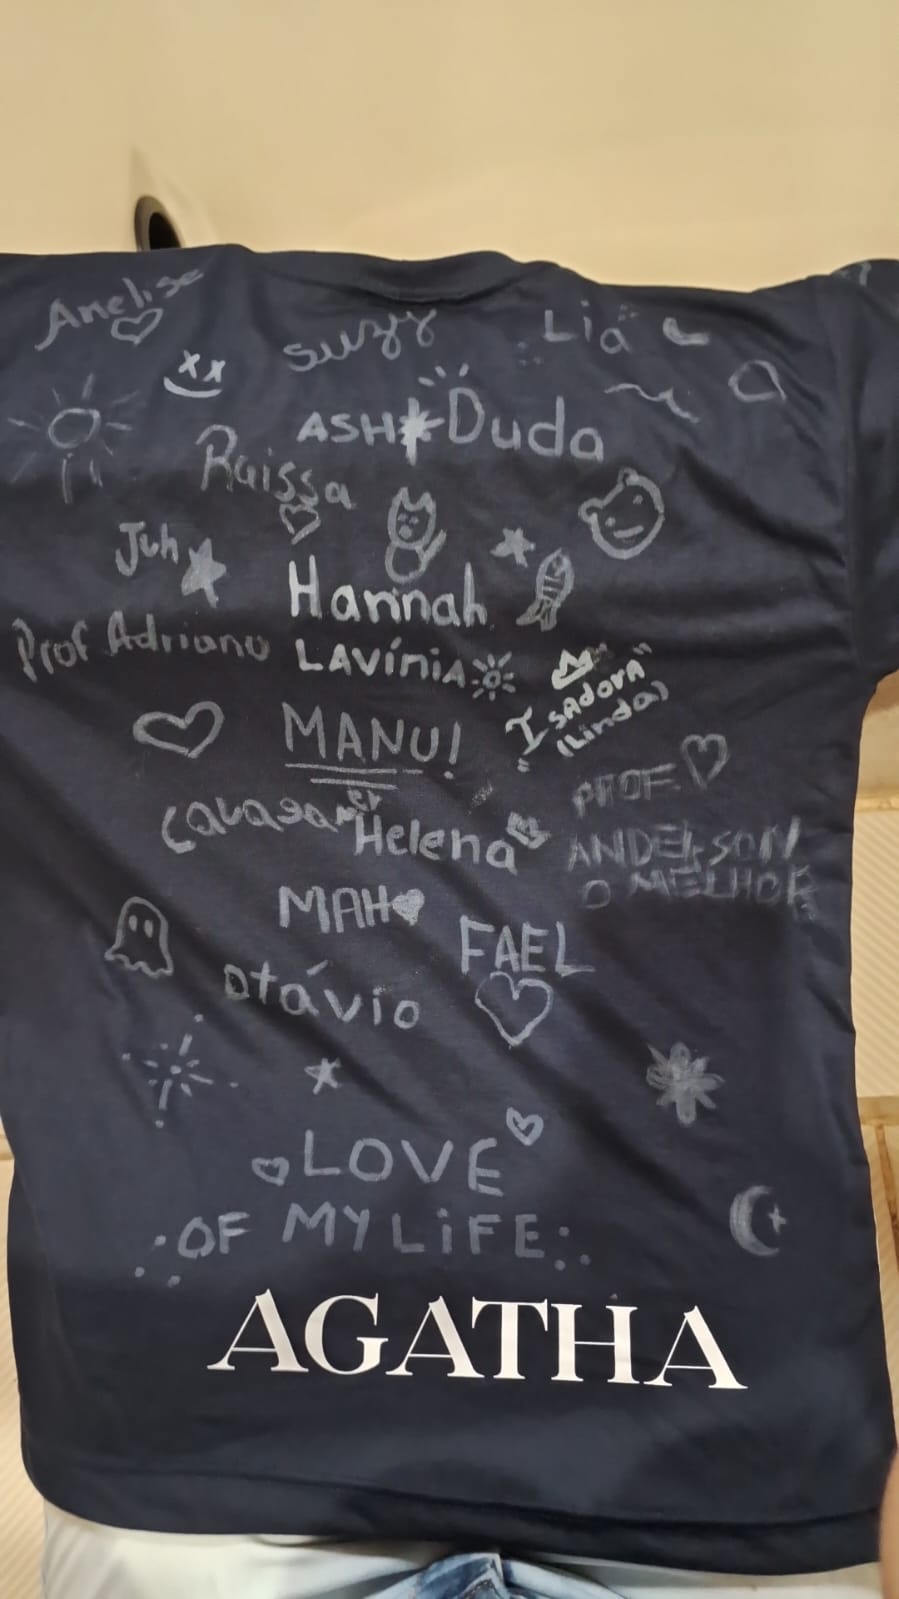 Anelise
Suzy
Lia
ASH
Duda
Raissa
Juh
Hannah
Prof Adriano
LAVÍNIA
"Isadora"
(Linda)
MANU!
Helena
PROF.
ANDERSON
O MELHOR
MAH
FAEL
Otávio
LOVE
OF MY LiFE
AGATHA